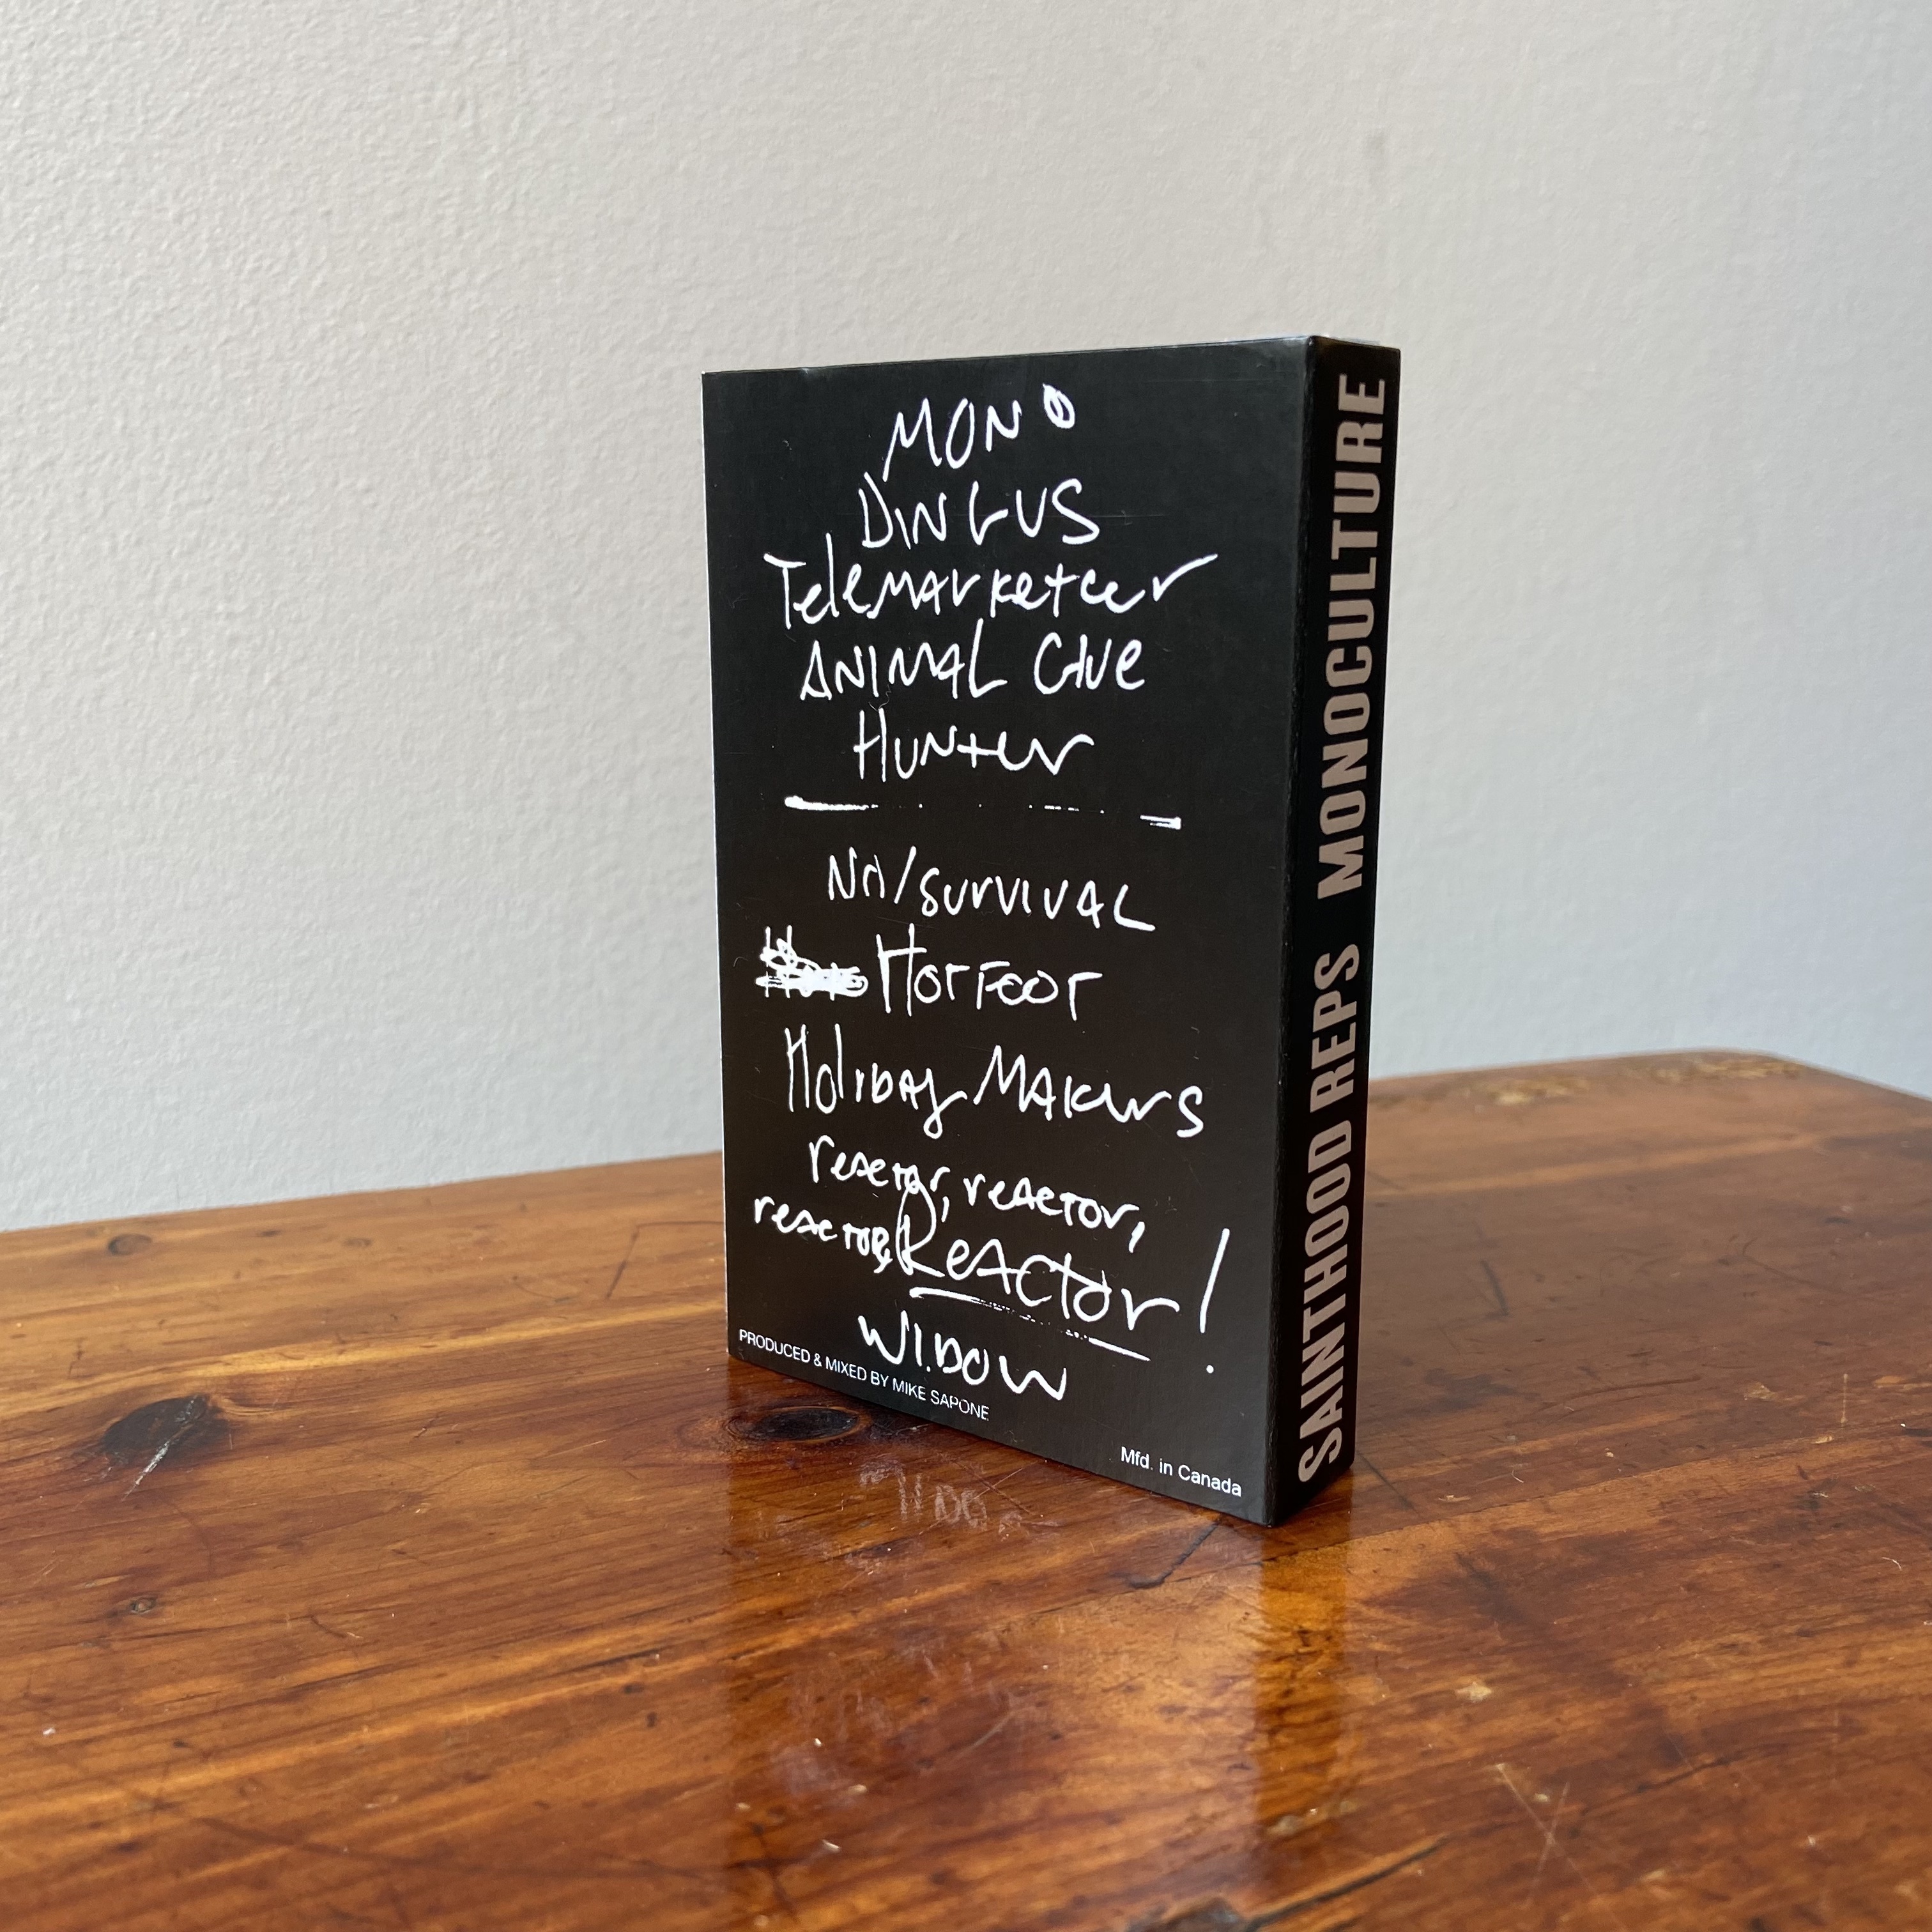 MONO
DINGUS
TeleMArKeteer
ANIMAL Glue
HUNter
No/SurVIVAL
HOTFOOT
HoliDAy MAKerS
reActor, reActor,
reActor, ReActor!
WIDOW
PRODUCED & MIXED BY MIKE SAPONE
Mfd. in Canada
SAINTHOOD REPS MONOCULTURE